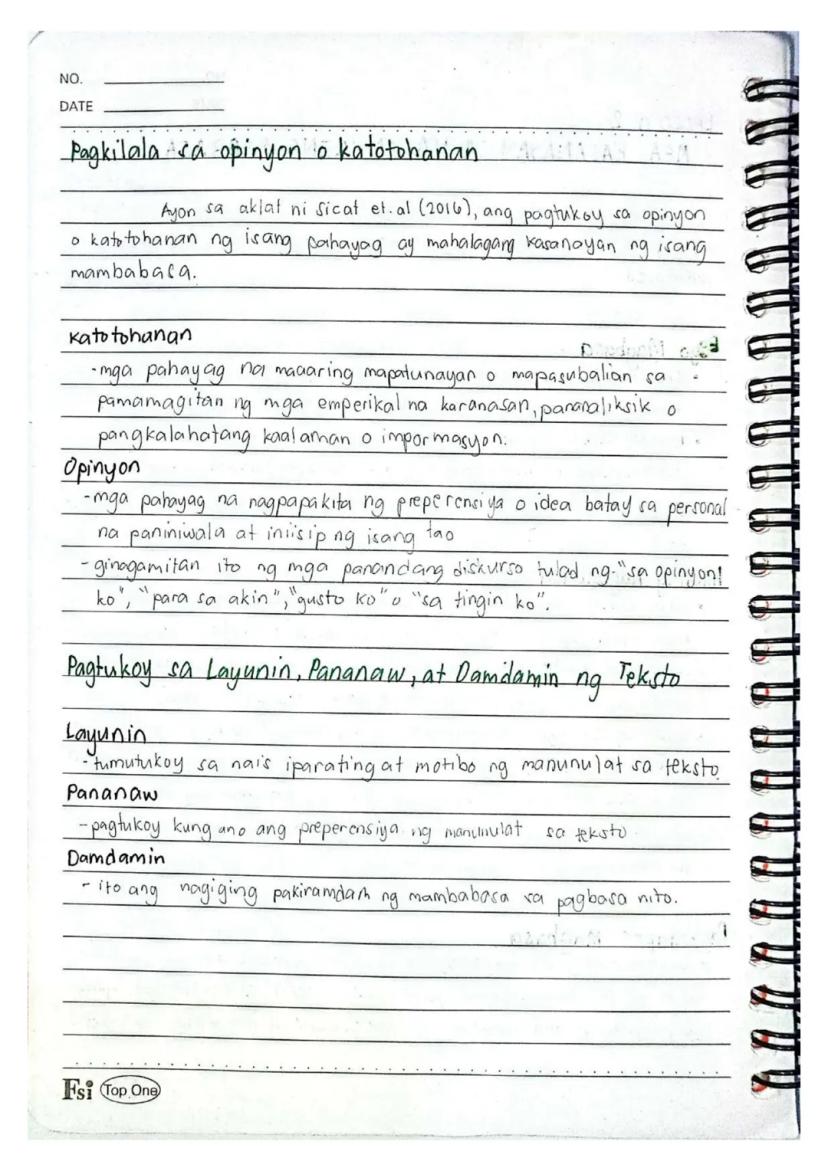 NO.
DATE
Pagkilala sa opinyon o katotohanan
Ayon sa aklat ni Sicat et.al (2016), ang pagtukoy sa opinyon
o katotohanan ng isang pahayag ay mahalagang kasanayan ng isang
mambabasa.
Katotohanan
-mga pahayag na maaaring mapatunayan o mapasubalian sa
pamamagitan ng mga emperikal na karanasan, pananaliksik o
pangkalahatang kaalaman o impormasyon.
Opinyon
-mga pahayag na nagpapakita ng preperensiya o idea batay sa personal
na paniniwala at iniisip ng isang tao
-ginagamitan ito ng mga panandang diskurso tulad ng "sa opinyon
ko", "para sa akin", "gusto ko" o "sa tingin ko".
Pagtukoy sa Layunin, Pananaw, at Damdamin ng Teksto
Layunin
-tumutukoy sa nais iparating at motibo ng manunulat sa teksto
Pananaw
-pagtukoy kung ano ang preperensiya ng manunulat sa teksto
Damdamin
- ito ang nagiging pakiramdam ng mambabasa sa pagbasa nito.
Fsi Top One